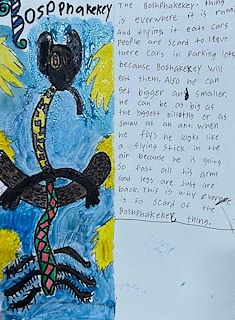 Boshphakekey
The Boshphakekey. thing
is everwhere it is runing
and flying it eats cars
People are scard to leave
there cars in Parking lots
because Boshphakekey will
eat them. Also he can
get bigger and smaller.
He can be as big as
the biggest building or as
small as an ant. when
he flys he looks like
a flying stick in the
air because he is going
so fast all his arms
and legs are just are
back. This is why everyone
is so scard of the
Boshphakekey thing.